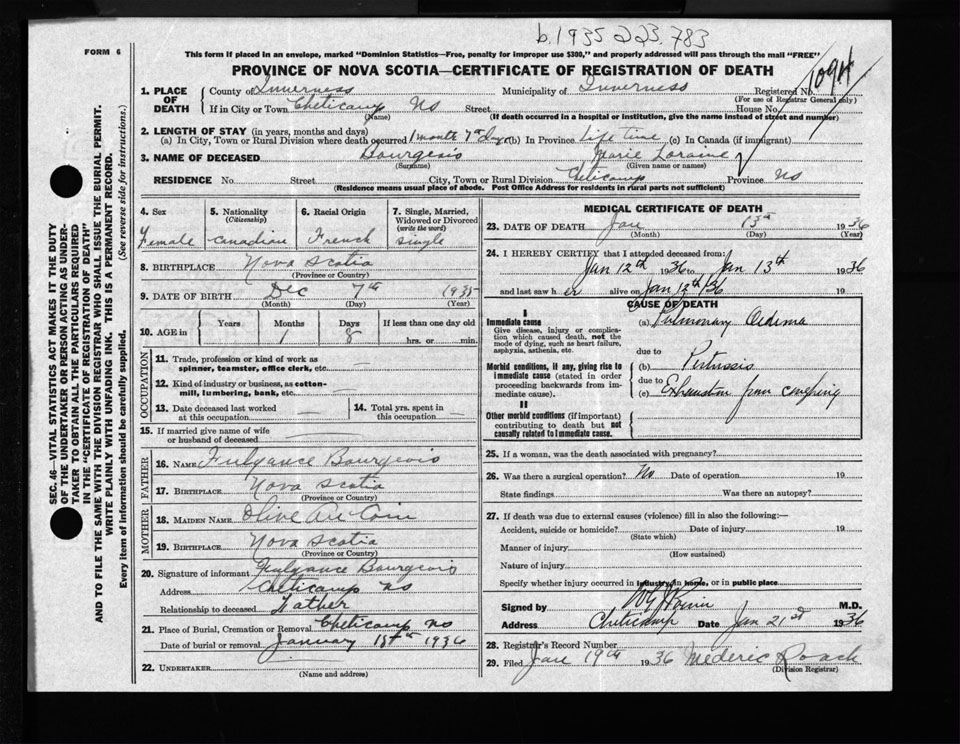 b. 1935 223.783
FORM 6
This form if placed in an envelope, marked "Dominion Statistics—Free, penalty for improper use $300," and properly addressed will pass through the mail "FREE"
PROVINCE OF NOVA SCOTIA—CERTIFICATE OF REGISTRATION OF DEATH
1094
1. PLACE OF DEATH County of Inverness Municipality of Inverness Registered No.
(For use of Registrar General only)
If in City or Town Cheticamp NS Street House No.
(Name) (If death occurred in a hospital or institution, give the name instead of street and number)
2. LENGTH OF STAY (in years, months and days)
(a) In City, Town or Rural Division where death occurred 1 month 7 days (b) In Province Life Time (c) In Canada (if immigrant)
3. NAME OF DECEASED Bourgeois Marie Loraine
(Surname) (Given name or names)
RESIDENCE No. Street City, Town or Rural Division Cheticamp Province NS
(Residence means usual place of abode. Post Office Address for residents in rural parts not sufficient)
SEC. 46—VITAL STATISTICS ACT MAKES IT THE DUTY
OF THE UNDERTAKER OR PERSON ACTING AS UNDER-
TAKER TO OBTAIN ALL THE PARTICULARS REQUIRED
IN THE "CERTIFICATE OF REGISTRATION OF DEATH"
AND TO FILE THE SAME WITH THE DIVISION REGISTRAR WHO SHALL ISSUE THE BURIAL PERMIT.
WRITE PLAINLY WITH UNFADING INK. THIS IS A PERMANENT RECORD.
Every item of information should be carefully supplied. (See reverse side for instructions.)
4. Sex 5. Nationality (Citizenship) 6. Racial Origin 7. Single, Married, Widowed or Divorced (write the word)
Female Canadian French Single
8. BIRTHPLACE Nova Scotia
(Province or Country)
9. DATE OF BIRTH Dec 7th 1935
(Month) (Day) (Year)
10. AGE in Years Months Days If less than one day old
1 8 hrs. or min.
OCCUPATION
11. Trade, profession or kind of work as
spinner, teamster, office clerk, etc.
12. Kind of industry or business, as cotton-
mill, lumbering, bank, etc.
13. Date deceased last worked at this occupation 14. Total yrs. spent in this occupation
15. If married give name of wife
or husband of deceased
FATHER
16. NAME Fulgance Bourgeois
17. BIRTHPLACE Nova Scotia
(Province or Country)
MOTHER
18. MAIDEN NAME Olive Au Coin
19. BIRTHPLACE Nova Scotia
(Province or Country)
20. Signature of informant Fulgance Bourgeois
Address Cheticamp NS
Relationship to deceased Father
21. Place of Burial, Cremation or Removal Cheticamp NS
Date of burial or removal January 15th 1936
22. UNDERTAKER
(Name and address)
MEDICAL CERTIFICATE OF DEATH
23. DATE OF DEATH Jan 13th 1936
(Month) (Day) (Year)
24. I HEREBY CERTIFY that I attended deceased from:
Jan 12th 1936 to Jan 13th 1936
and last saw her alive on Jan 12th/36 19
CAUSE OF DEATH
I
Immediate cause
Give disease, injury or complica-
tion which caused death, not the
mode of dying, such as heart failure,
asphyxia, asthenia, etc.
(a) Pulmonary Oedema
due to
Morbid conditions, if any, giving rise to
immediate cause (stated in order
proceeding backwards from im-
mediate cause).
(b) Pertussis
due to
(c) Exhaustion from coughing
II
Other morbid conditions (if important)
contributing to death but not
causally related to immediate cause.
25. If a woman, was the death associated with pregnancy?
26. Was there a surgical operation? No Date of operation 19
State findings Was there an autopsy?
27. If death was due to external causes (violence) fill in also the following:—
Accident, suicide or homicide? Date of injury 19
(State which)
Manner of injury
(How sustained)
Nature of injury
Specify whether injury occurred in industry, in home, or in public place
Signed by M.D.
Address Cheticamp Date Jan 21st 1936
28. Registrar's Record Number
29. Filed Jan 19th 1936 Mederic Roach
(Division Registrar)